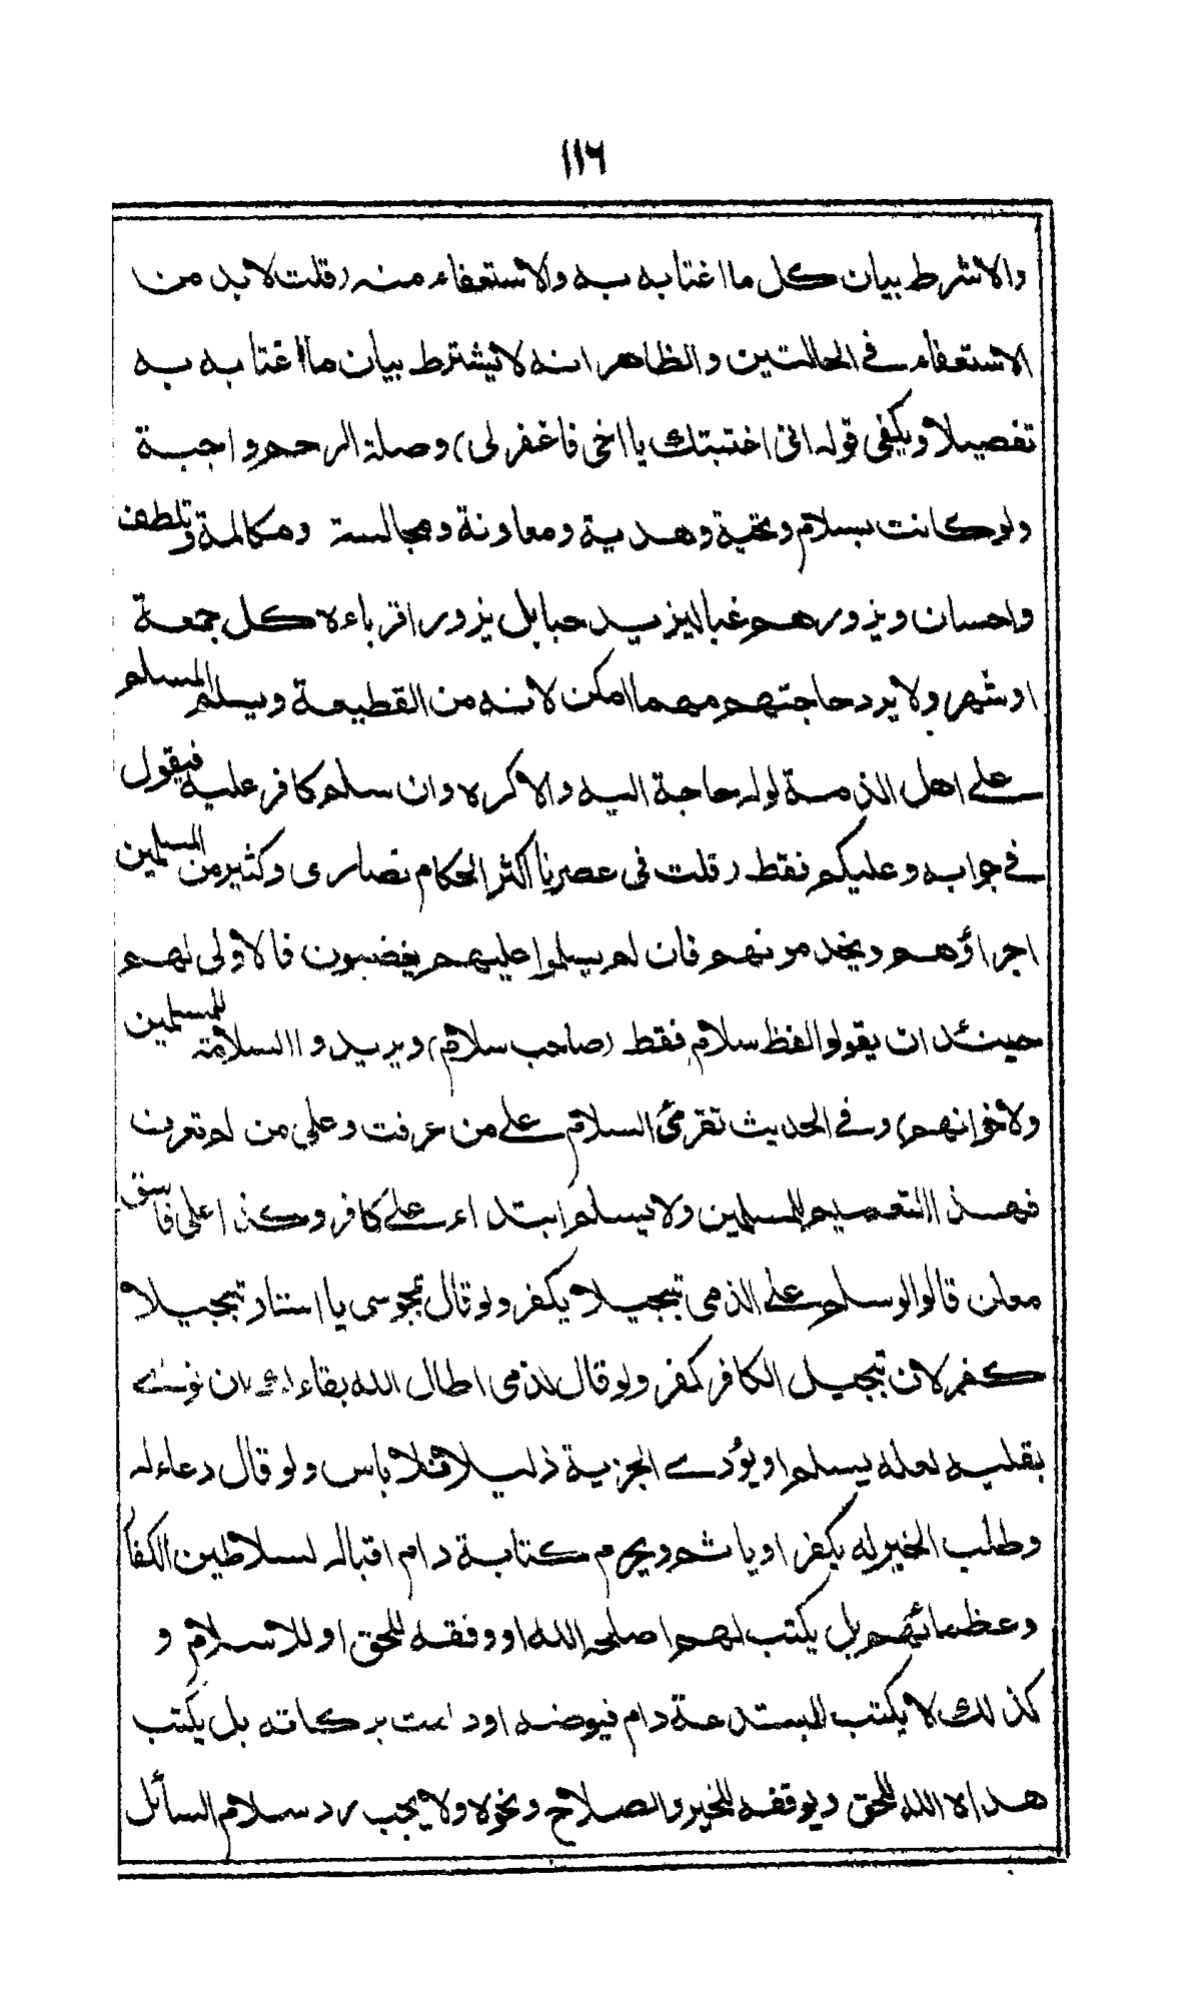 ١١٦
والا شرط بيان كل ما اغتابه به والاستعفاء منه (قلت لا بد من
الاستعفاء في الحالتين والظاهر انه لا يشترط بيان ما اغتابه به
تفصيلا ويكفي قوله انی اغتبتك يا اخی فاغفر لی) وصلة الرحم واجبة
ولو كانت بسلام وتحية وهدية ومعاونة ومجالسة ومكالمة وتلطف
واحسان ويزورهم غبا ليزيد حبا بل يزور اقرباءه كل جمعة
او شهر ولا يرد حاجتهم مهما امكن لانه من القطيعة ويسلم المسلم
علے اهل الذمة لو له حاجة اليه والا كره وان سلم كافر عليه فيقول
في جوابه وعليكم فقط (قلت فی عصرنا اكثر الحكام نصاری وكثير من المسلمين
اجراؤهم ويخدمونهم فان لم يسلموا عليهم يغضبون فالاولی لهم
حينئذ ان يقولوا لفظ سلام فقط (صاحب سلام) ويريدوا السلامة للمسلمين
ولاخوانهم) وفے الحديث تقرئ السلام علے من عرفت وعلی من لم تعرف
فهذا التعميم للمسلمين ولا يسلم ابتداء علے كافر وكذا علی فاسق
معلن قالوا لو سلم علے الذمی تبجيلا يكفر ولو قال لمجوسی يا استاز تبجيلا
كفر لان تبجيل الكافر كفر ولو قال لذمی اطال الله بقاءك ان نوے
بقلبه لعله يسلم او يؤدے الجزية ذليلا فلا باس ولو قال دعاء له
وطلب الخير له يكفر او ياثم ويحرم كتابة دام اقباله لسلاطين الكفار
وعظمائهم بل يكتب لهم اصلحه الله او وفقه للحق او للاسلام و
كذلك لا يكتب للمبتدعة دام فيوضه او دامت بركاته بل يكتب
هداه الله للحق ويوفقه للخير والصلاح ونحوه ولا يجب رد سلام السائل